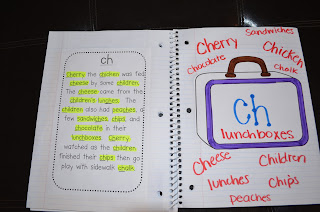 ch
Cherry the chicken was fed
cheese by some children.
The cheese came from the
children's lunches. The
children also had peaches, a
few sandwiches, chips, and
chocolate in their
lunchboxes. Cherry
watched as the children
finished their chips then go
play with sidewalk chalk.
Sandwiches
Cherry
Chicken
chocolate
chalk
ch
lunchboxes
Cheese
Children
lunches
Chips
peaches